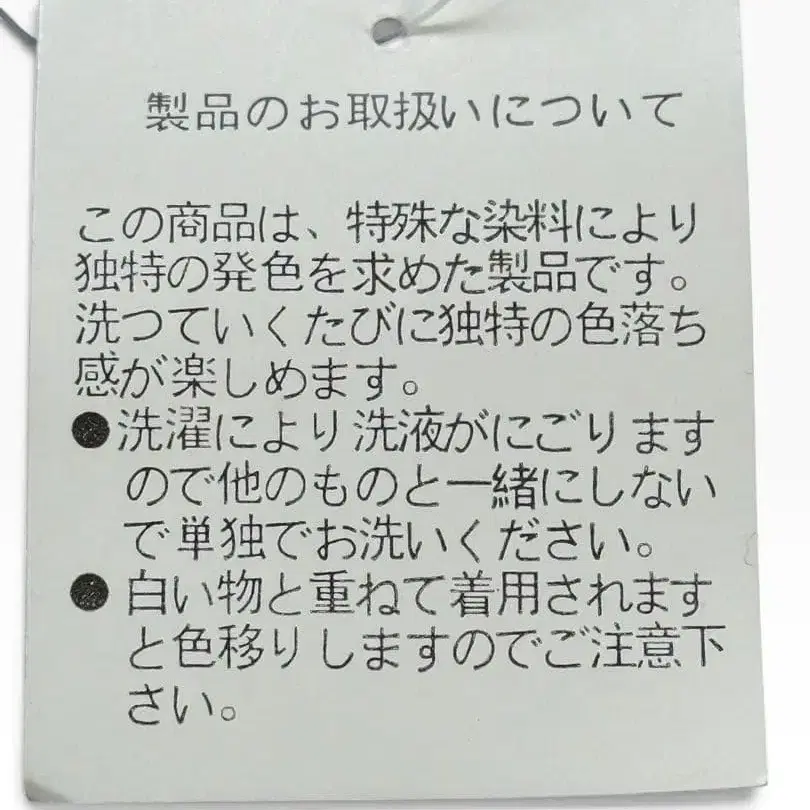 製品のお取扱いについて
この商品は、特殊な染料により
独特の発色を求めた製品です。
洗つていくたびに独特の色落ち
感が楽しめます。
●洗濯により洗液がにごります
ので他のものと一緒にしない
で単独でお洗いください。
●白い物と重ねて着用されます
と色移りしますのでご注意下
さい。